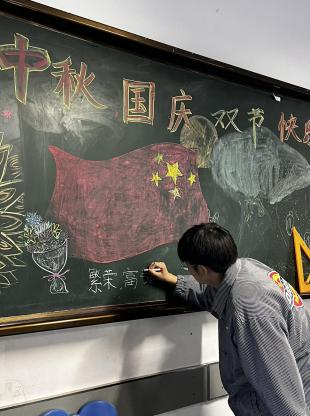 中秋国庆双节快
繁荣高